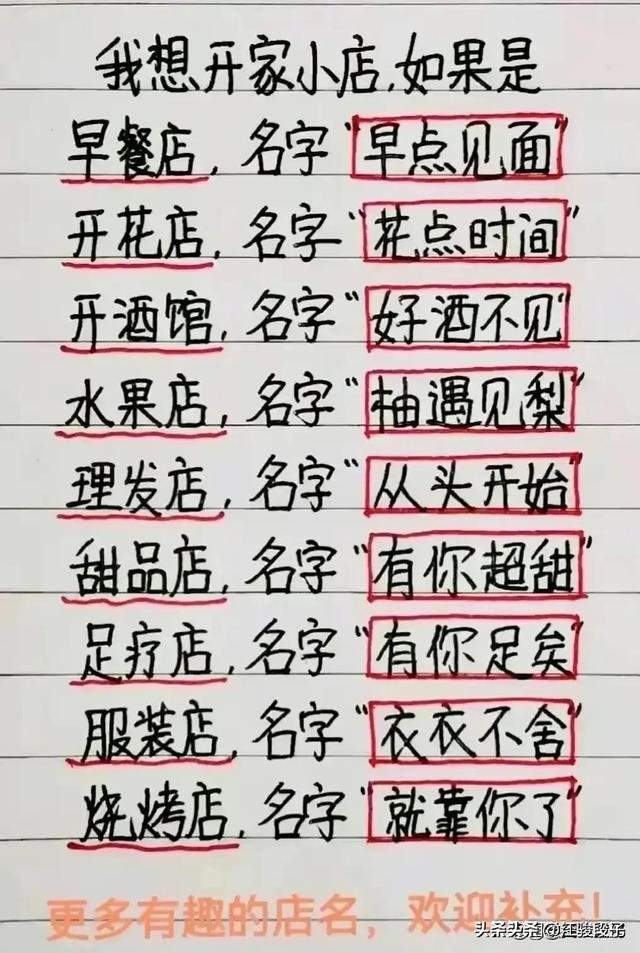 我想开家小店,如果是
早餐店,名字"早点见面"
开花店,名字"花点时间"
开酒馆,名字"好酒不见"
水果店,名字"柚遇见梨"
理发店,名字"从头开始"
甜品店,名字"有你超甜"
足疗店,名字"有你足矣"
服装店,名字"衣衣不舍"
烧烤店,名字"就靠你了"
更多有趣的店名,欢迎补充!